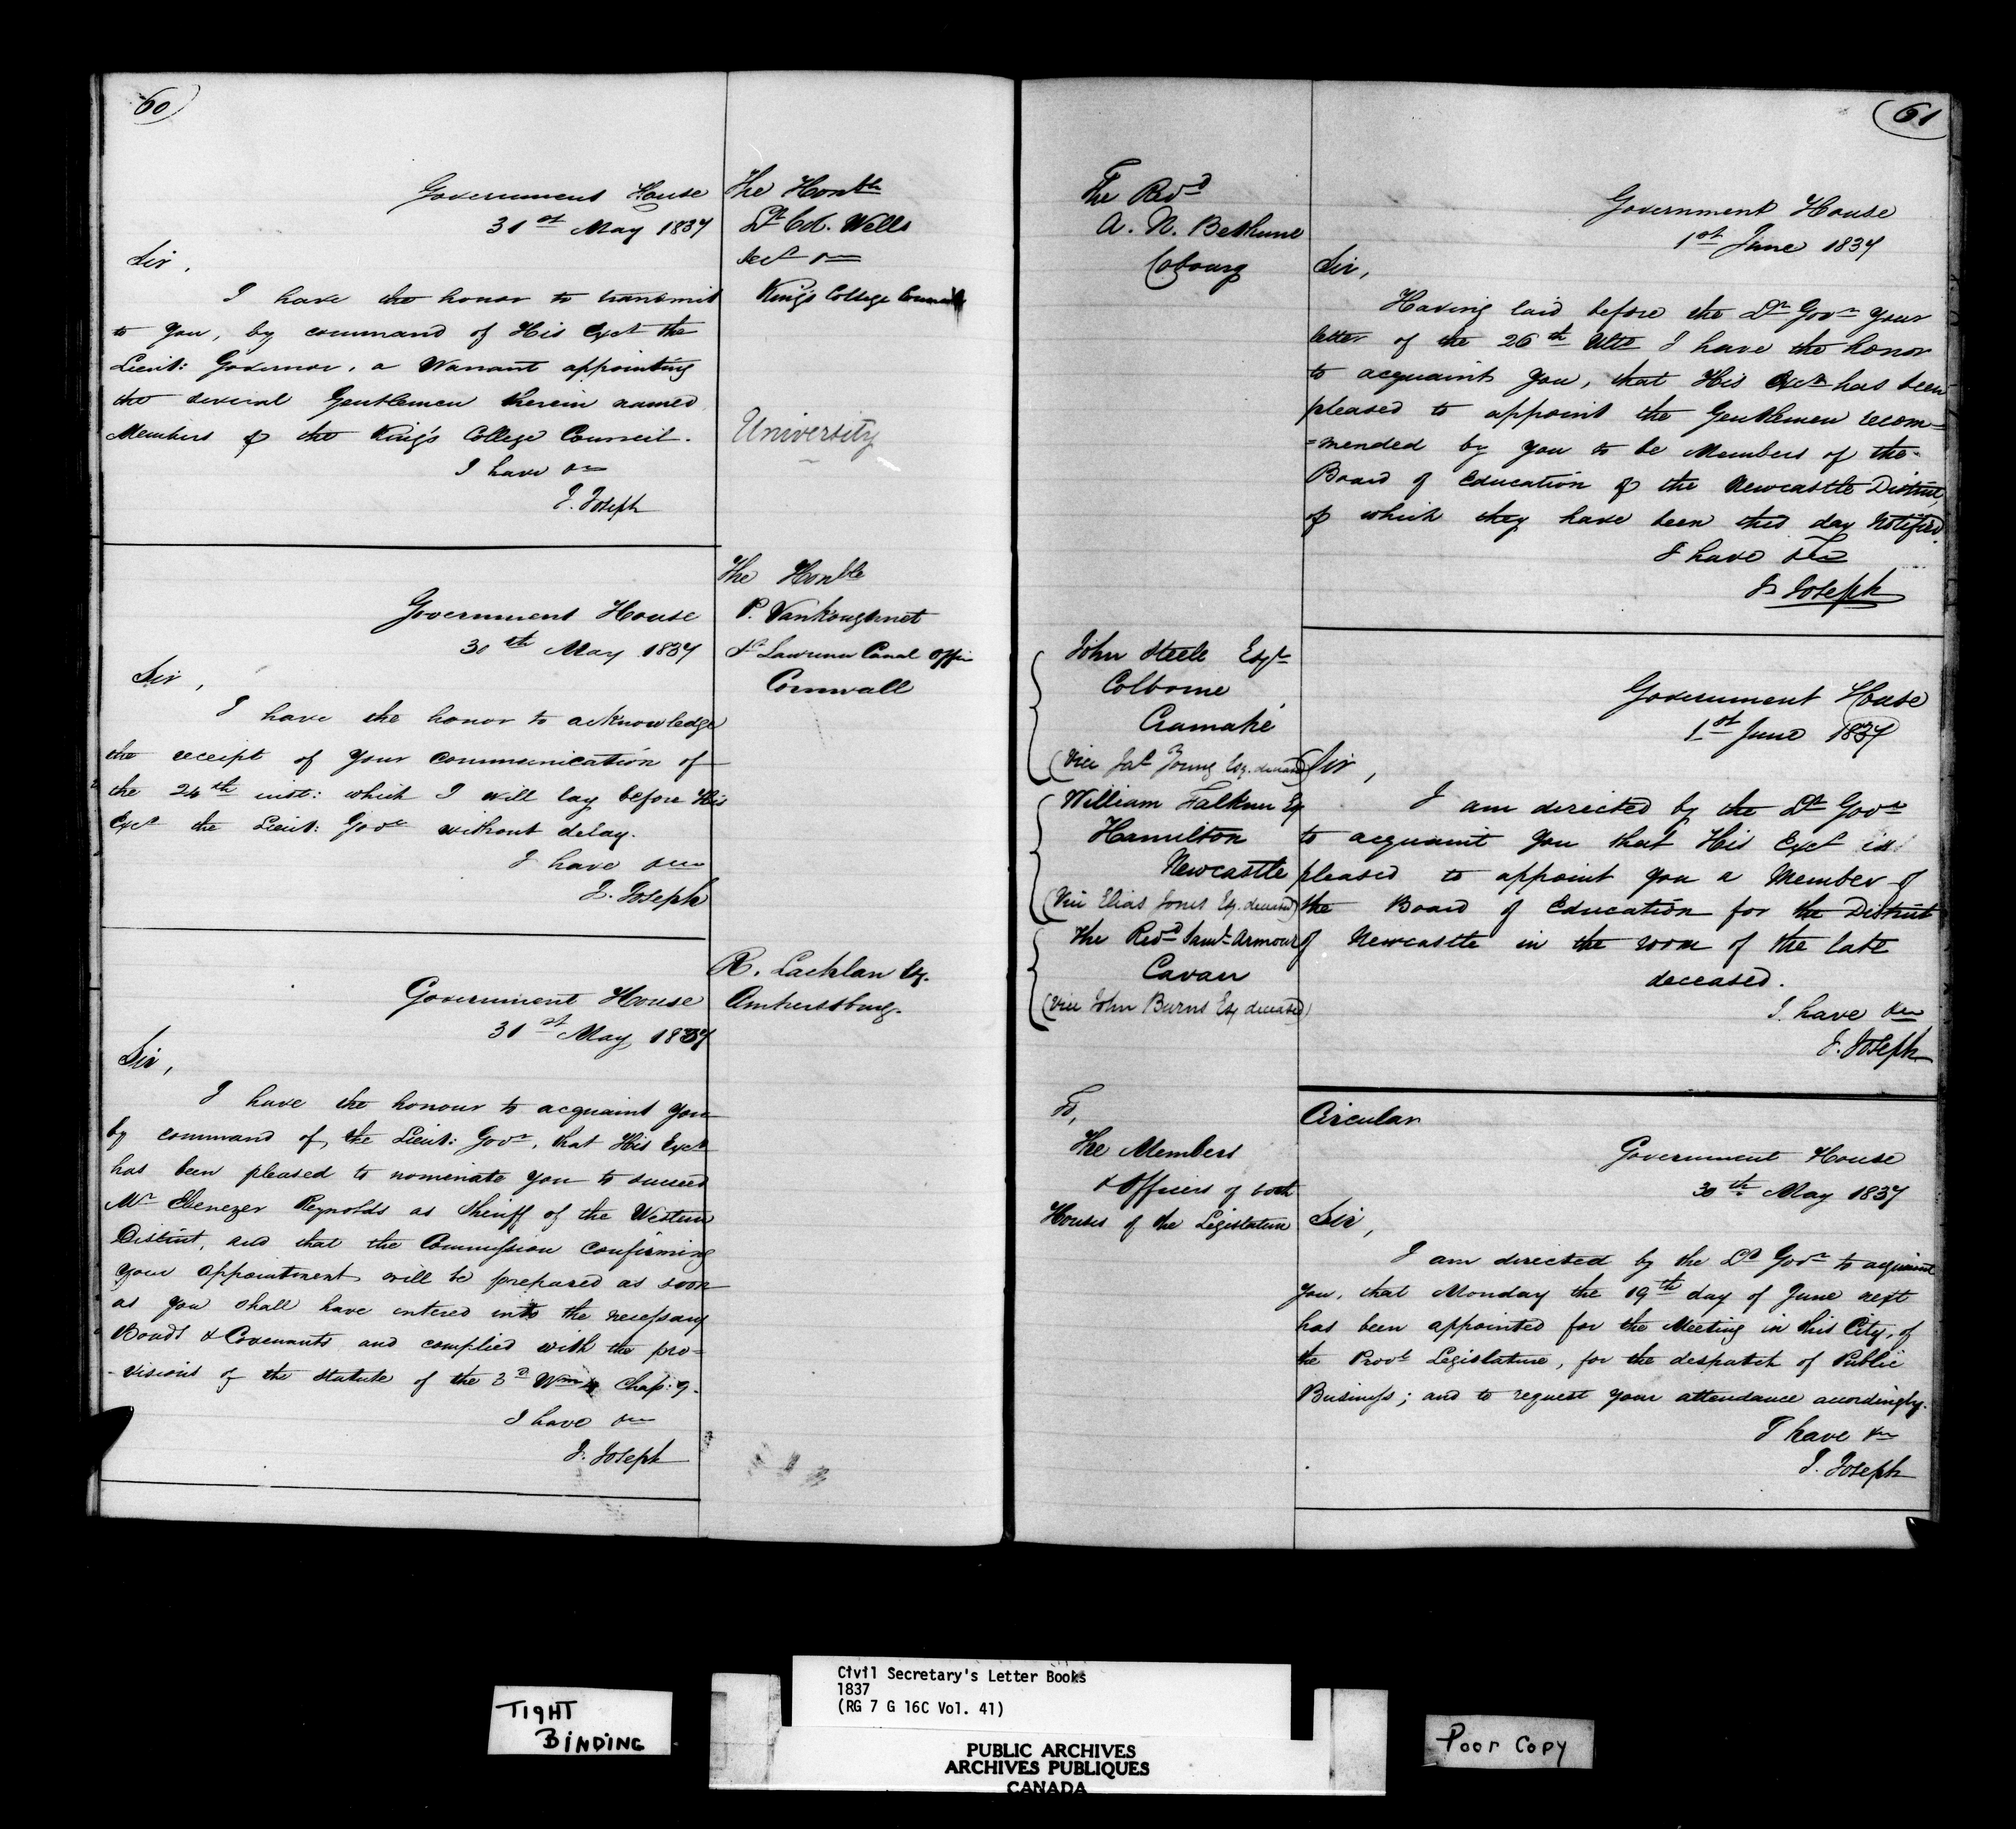 60
Government House
31st May 1837
The Honble
Lt Col. Wells
Sec &c
King's College Council
Sir,
I have the honor to transmit
to you, by command of His Excy the
Lieut: Governor, a Warrant appointing
the several Gentlemen therein named
Members of the King's College Council.
I have &c
J. Joseph
University
Government House
30th May 1837
The Honble
P. Vankoughnet
St Lawrence Canal Office
Cornwall
Sir,
I have the honor to acknowledge
the receipt of your communication of
the 24th inst: which I will lay before His
Excy the Lieut: Govr without delay.
I have &c
J. Joseph
Government House
31st May 1837
R. Lachlan Esq.
Amherstburg.
Sir,
I have the honour to acquaint you
by command of the Lieut: Govr, that His Excy
has been pleased to nominate you to succeed
Mr Ebenezer Reynolds as Sheriff of the Western
District, and that the Commission confirming
your appointment will be prepared as soon
as you shall have entered into the necessary
Bonds & Covenants and complied with the pro=
-visions of the Statute of the 3d Wm 4 Chap: 9.
I have &c
J. Joseph
61
The Revd
A. N. Bethune
Cobourg
Government House
1st June 1837
Sir,
Having laid before the Lt Govr your
letter of the 26th Ulto I have the honor
to acquaint you, that His Excy has been
pleased to appoint the Gentlemen recom=
=mended by you to be Members of the
Board of Education of the Newcastle District,
of which they have been this day notified.
I have &c
J. Joseph
John Steele Esqr
Colborne
Cramahé
(Vice Jas Young Esq. deceased)
William Falkner Esq
Hamilton
Newcastle
(Vice Elias Jones Esq. deceased)
The Revd Saml Armour
Cavan
(Vice John Burns Esq deceased)
Government House
1st June 1837
Sir,
I am directed by the Lt Govr
to acquaint you that His Excy is
pleased to appoint you a Member of
the Board of Education for the District
of Newcastle in the room of the late
deceased.
I have &c
J. Joseph
To,
The Members
& Officers of both
Houses of the Legislature
Circular
Government House
30th May 1837
Sir,
I am directed by the Lt Govr to acquaint
you, that Monday the 19th day of June next
has been appointed for the Meeting in this City, of
the Provl Legislature, for the despatch of Public
Business; and to request your attendance accordingly.
I have &c
J. Joseph
TIGHT
BINDING
Civil Secretary's Letter Books
1837
(RG 7 G 16C Vol. 41)
PUBLIC ARCHIVES
ARCHIVES PUBLIQUES
CANADA
Poor Copy